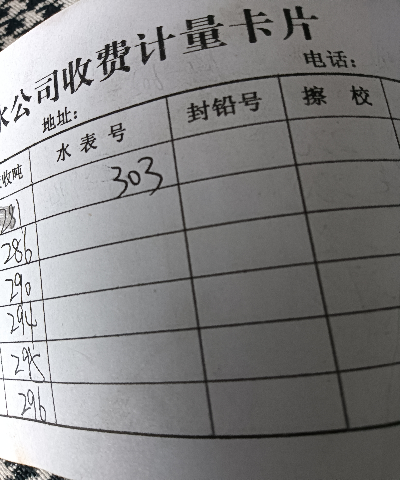 水公司收费计量卡片
地址: 电话:
收吨 水表号 封铅号 擦校
281 303
286
290
294
295
296